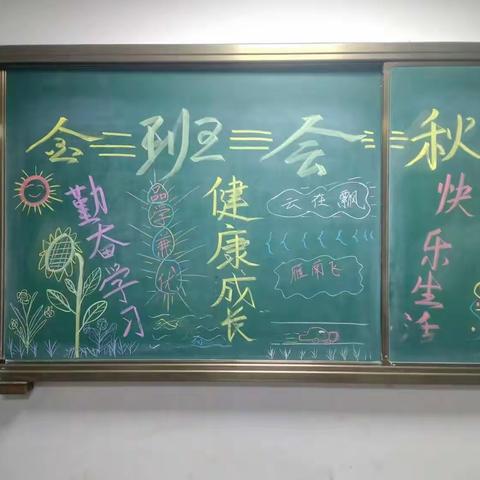 金三班三会三秋
勤奋学习
品学兼优
健康成长
云在飘
雁南飞
快乐生活